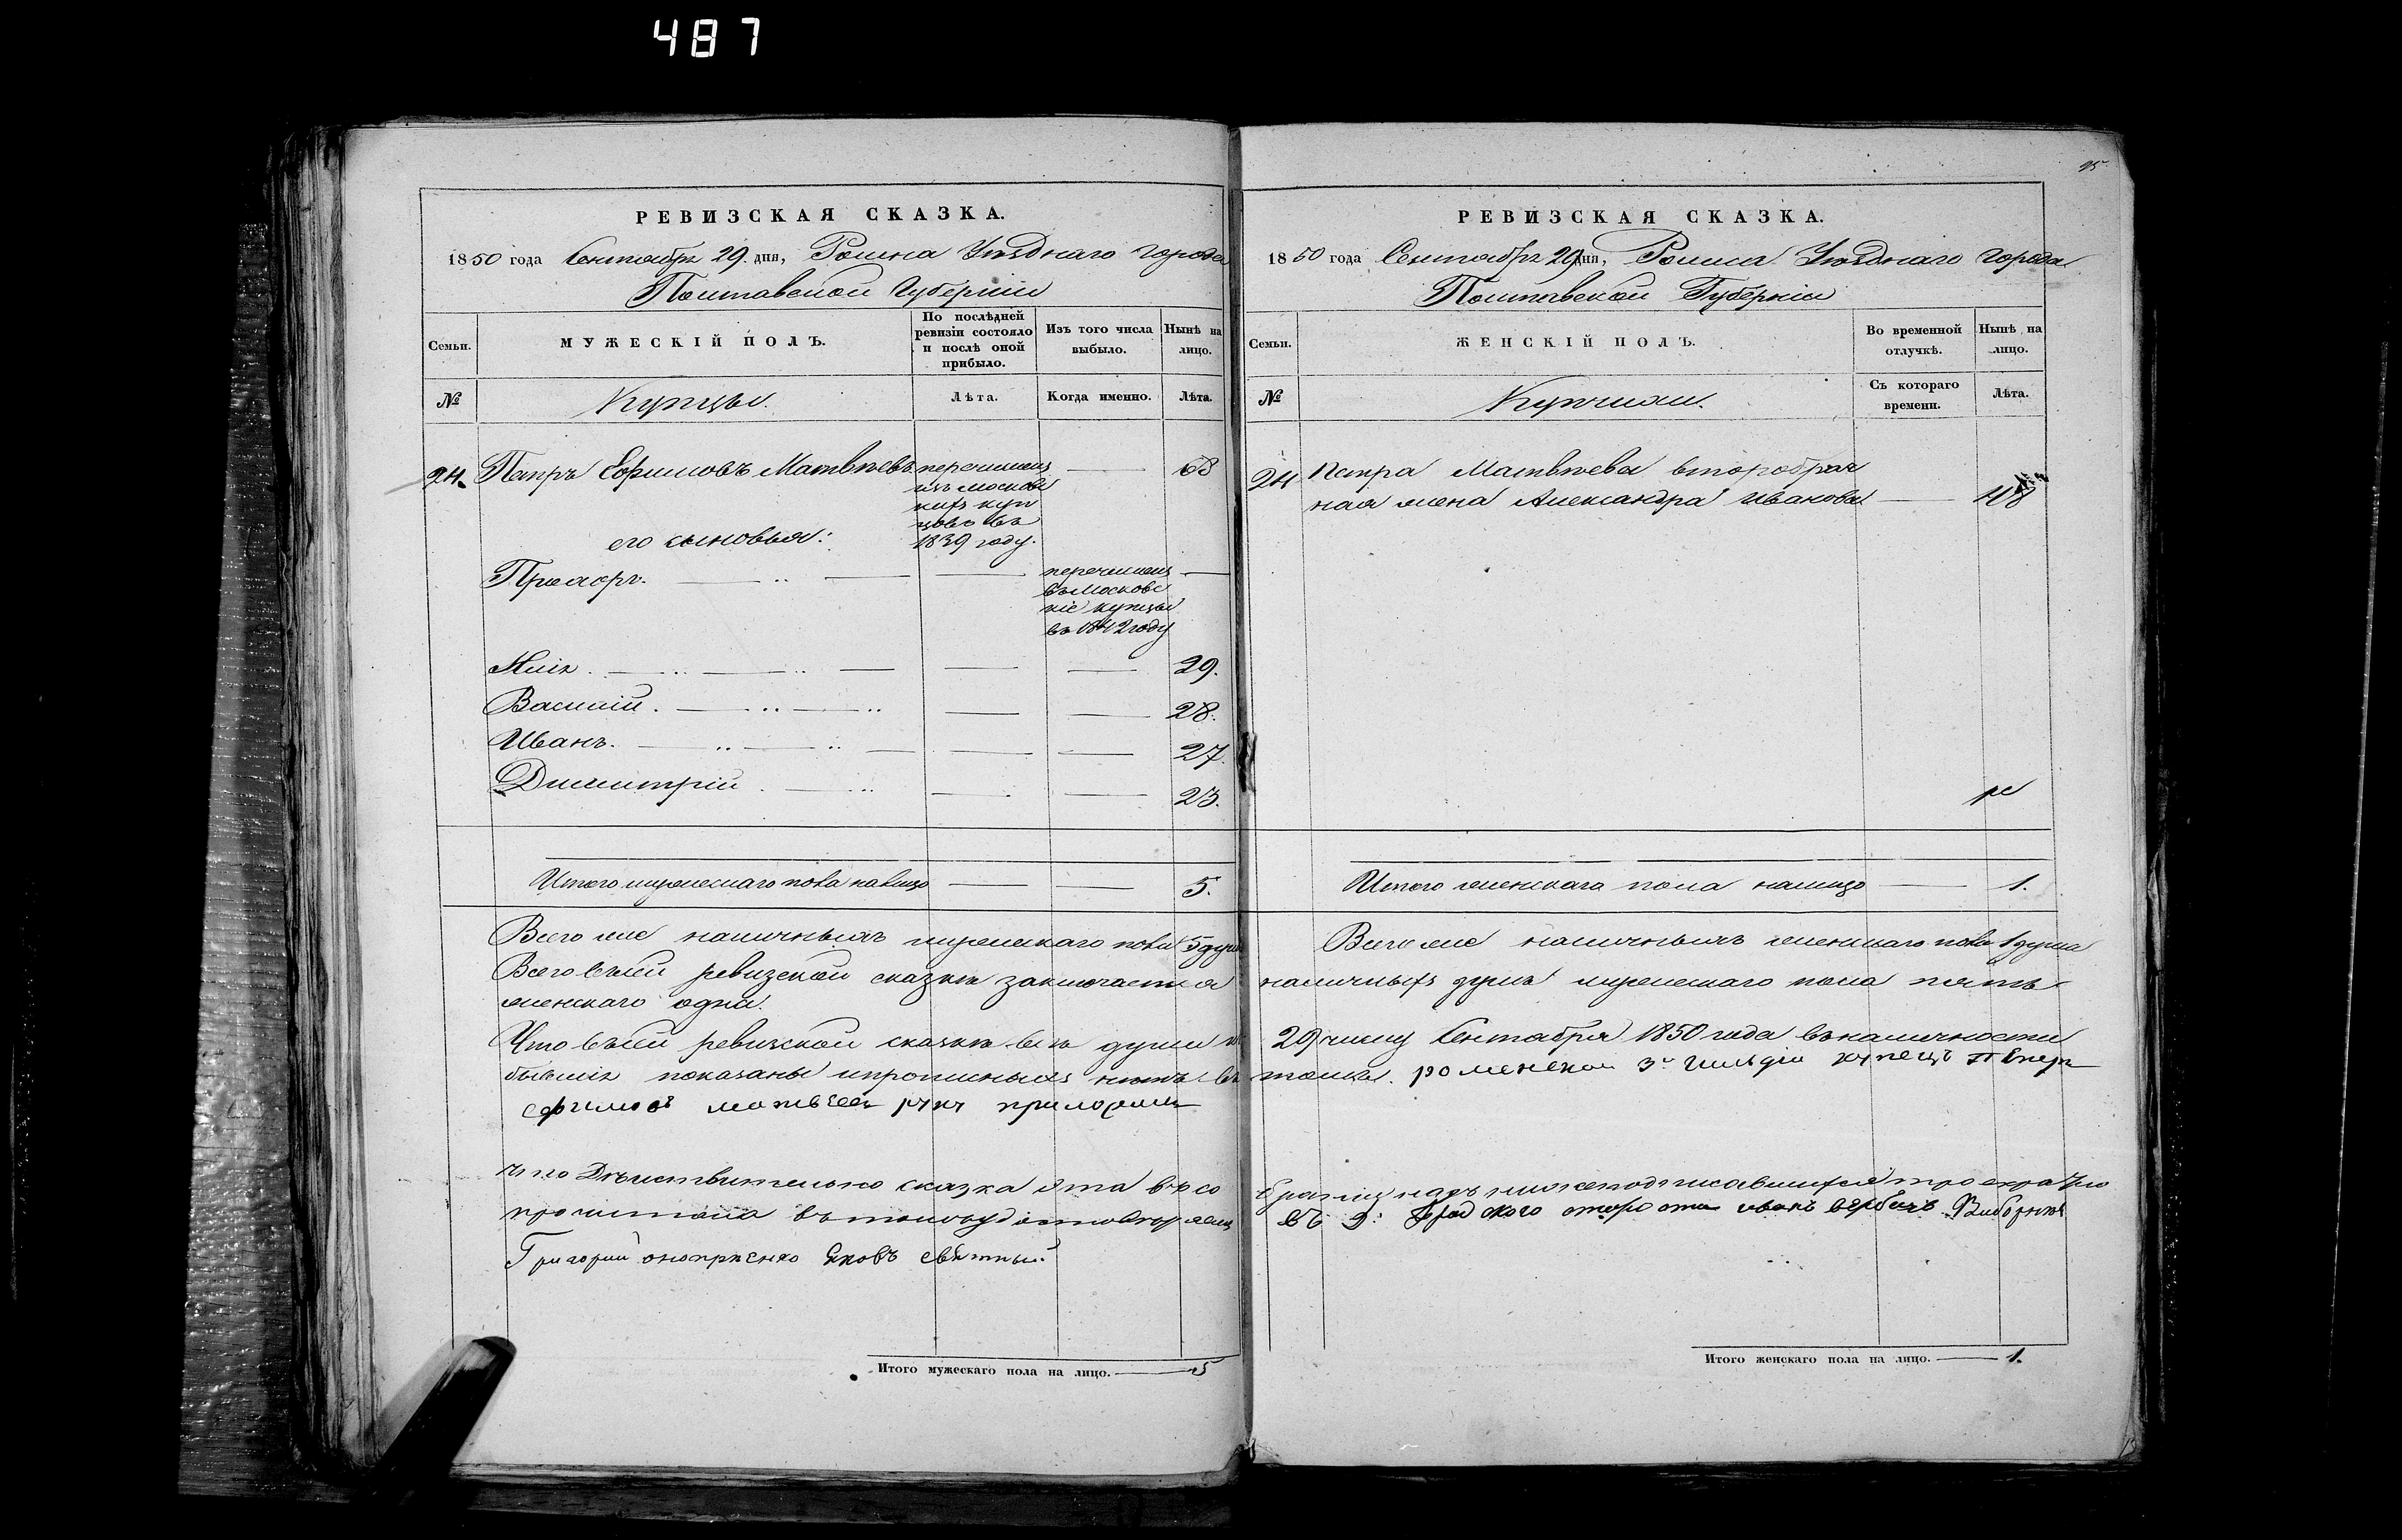 487
РЕВИЗСКАЯ СКАЗКА.
1850 года Сентября 29. дня, Ромна Уѣзднаго города
Полтавской Губерніи
Семьи.
МУЖЕСКІЙ ПОЛЪ.
По послѣдней ревизіи состояло и послѣ оной прибыло.
Изъ того числа выбыло.
Нынѣ на лицо.
№
Купцы.
Лѣта.
Когда именно.
Лѣта.
24. Петръ Ефимовъ Матвѣевъ перечислен 68
изъ Московс
кихъ куп
цовъ въ
его сыновья: 1839 году.
перечислен
въ Московс
кіе купцы
въ 1842 году
29.
Василій. 28.
Иванъ. 27.
Димитрій 23.
Итого мужескаго пола налицо 5.
Всего же наличныхъ мужескаго пола 5 душ
Всего въ сей ревизской сказкѣ заключается
женскаго одна.
Что въ сей ревизской сказкѣ всѣ души к
бывшіе показаны и прописныхъ нѣтъ въ
ефимовъ матвеев руку приложил
что Дѣйствительно сказка эта въ со
прочитана въ томъ удостоверяем
Григорий оноприенко Яковъ
Итого мужескаго пола на лицо. 5
25
РЕВИЗСКАЯ СКАЗКА.
1850 года Сентября 29 дня, Ромна Уѣзднаго города
Полтавской Губерніи
Семьи.
ЖЕНСКІЙ ПОЛЪ.
Во временной отлучкѣ.
Нынѣ на лицо.
№
Купчихи.
Съ котораго времени.
Лѣта.
24 Петра Матвѣева второбрач
ная жена Александра Иванова 48
Итого женскаго пола налицо 1.
Всего же наличныхъ женскаго пола 1 душа
наличныхъ душъ мужескаго пола пять
29 числу Сентября 1850 года въ наличности
роменской 3й гильдіи купецъ Петръ
браніи нижеподписавшихся троекратно
въ Градского старосты иванъ Выборные
Итого женскаго пола на лицо. 1.